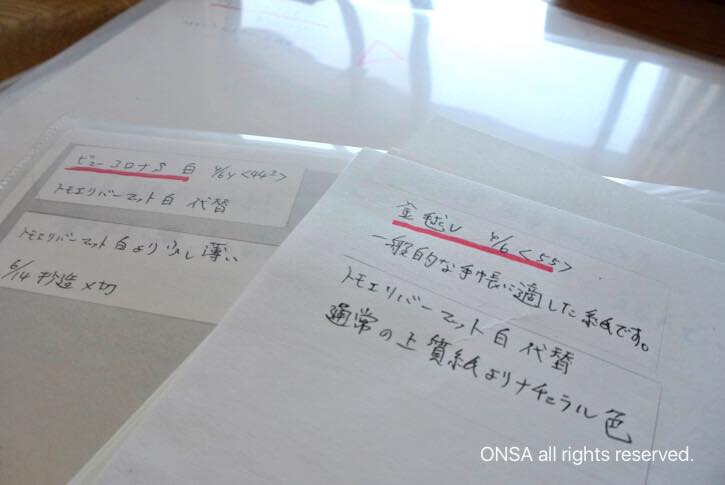 ビューコロナS 白 Y/6Y <44²>
トモエリバーマット白 代替
トモエリバーマット白より少し薄い
6/14 抄造〆切
金毬L Y/6 <55>
一般的な手帳に適した紙です。
トモエリバーマット白 代替
通常の上質紙よりナチュラル色
ONSA all rights reserved.